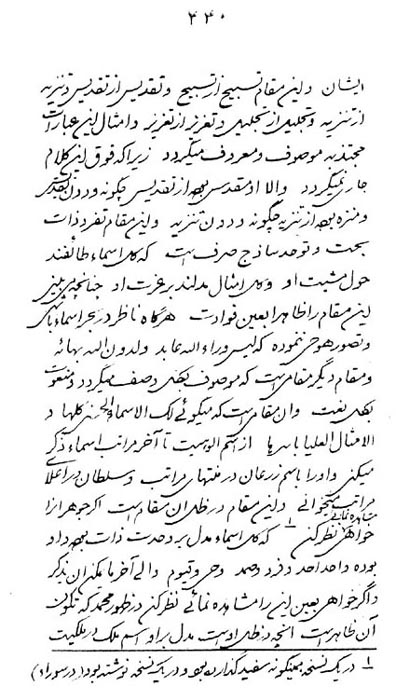 ۴۴۰
ایشان و این مقام تسبیح از تسبیح و تقدیس از تقدیس و تنزیه
از تنزیه و تجلیل از تجلیل و تعزیز از تعزیز و امثال این عبارات
مجتذبه موصوف و معروف میگردد زیرا که فوق این کلام
جاری نمیگردد و الا او مقدس بوده از تقدیس چگونه و دون تقدیس
و منزه بوده از تنزیه چگونه و دون تنزیه و این مقام تفرد ذات
بحت و توحد ساذج صرف است که کل اسماء طائفند
حول مشیت او و کل امثال مدلند بر عزت او چنانچه می بینی
این مقام را ظاهرا بعین فوادت هرگاه ناظر در بحر اسماء الهی
و تصور هو حی نموده که لیس وراء الله عابد و لدون الله بهائه
و مقام دیگر مقامی است که موصوف بکل وصف میگردد و منعوت
بکل نعت و ان مقامی است که میگوئی لک الاسماء الحسنی کلها و
الامثال العلیا باسرها از اسم الوهیت تا آخر مراتب اسماء ذکر
میکنی و او را باسم زرعان در منتهای مراتب و سلطان در اعلای
مراتب میخوانی و این مقام در ظل ان مقام است اگر جوهر انرا
مشاهده نمائی
خواهی نظر کن ۱ که کل اسماء مدل بر وحدت ذات بوده و او
بوده واحد احد و فرد و صمد و حی و قیوم و الی آخر ما یمکن ان یذکر
و اگر خواهی بعین این را مشاهده نمائی نظر کن در ظهور محمد که تکون
آن ظاهر است آنچه در ظل اوست مدل بر او اسم ملک در ملکیت
۱ در یک نسخه همینگونه سفید گذارده بود و در یک نسخه نوشته بود (در سور او)